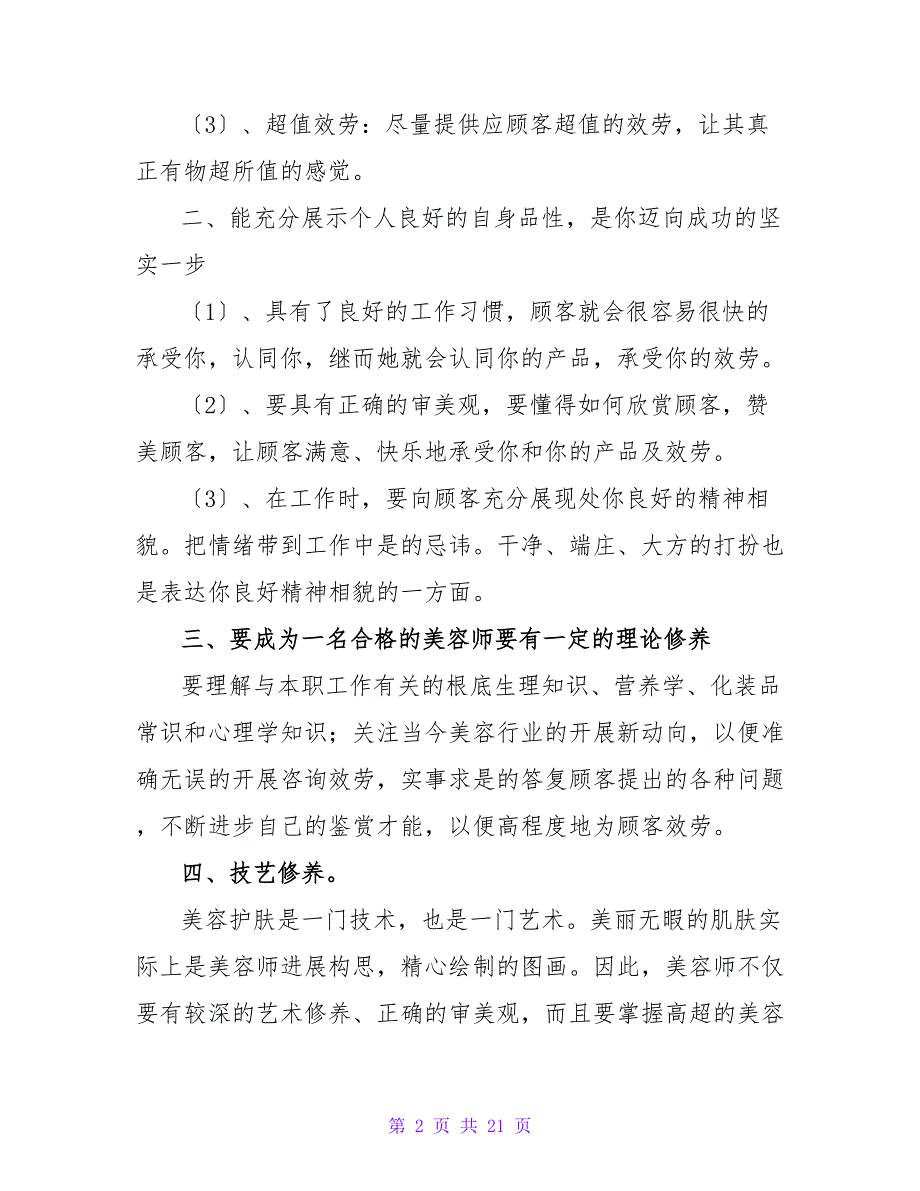 〔3〕、超值效劳：尽量提供应顾客超值的效劳，让其真
正有物超所值的感觉。
二、能充分展示个人良好的自身品性，是你迈向成功的坚
实一步
〔1〕、具有了良好的工作习惯，顾客就会很容易很快的
承受你，认同你，继而她就会认同你的产品，承受你的效劳。
〔2〕、要具有正确的审美观，要懂得如何欣赏顾客，赞
美顾客，让顾客满意、快乐地承受你和你的产品及效劳。
〔3〕、在工作时，要向顾客充分展现处你良好的精神相
貌。把情绪带到工作中是的忌讳。干净、端庄、大方的打扮也
是表达你良好精神相貌的一方面。
三、要成为一名合格的美容师要有一定的理论修养
要理解与本职工作有关的根底生理知识、营养学、化装品
常识和心理学知识；关注当今美容行业的开展新动向，以便准
确无误的开展咨询效劳，实事求是的答复顾客提出的各种问题
，不断进步自己的鉴赏才能，以便高程度地为顾客效劳。
四、技艺修养。
美容护肤是一门技术，也是一门艺术。美丽无暇的肌肤实
际上是美容师进展构思，精心绘制的图画。因此，美容师不仅
要有较深的艺术修养、正确的审美观，而且要掌握高超的美容
第 2 页 共 21 页